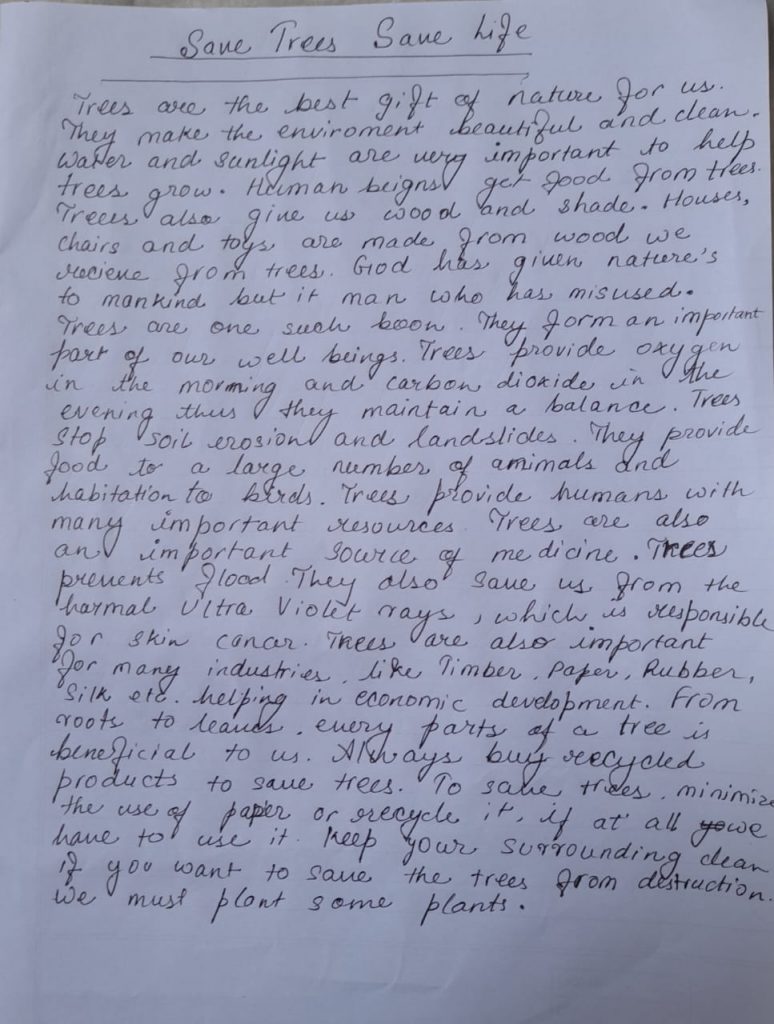 Save Trees Save Life
Trees are the best gift of nature for us.
They make the enviroment beautiful and clean.
Water and sunlight are very important to help
trees grow. Human beigns get food from trees.
Treees also give us wood and shade. Houses,
chairs and toys are made from wood we
recieve from trees. God has given nature's
to mankind but it man who has misused.
Trees are one such boon. They form an important
part of our well beings. Trees provide oxygen
in the morming and carbon dioxide in the
evening thus they maintain a balance. Trees
stop soil erosion and landslides. They provide
food to a large number of amimals and
habitation to birds. Trees provide humans with
many important resources. Trees are also
an important source of medicine. Trees
prevents flood. They also save us from the
harmal Ultra Violet rays, which is responsible
for skin cancar. Trees are also important
for many industries, like Timber, Paper, Rubber,
Silk etc. helping in economic development. From
roots to leaves, every parts of a tree is
beneficial to us. Always buy recycled
products to save trees. To save trees, minimize
the use of paper or recycle it, if at all we
have to use it. Keep your surrounding clean
if you want to save the trees from destruction.
We must plant some plants.